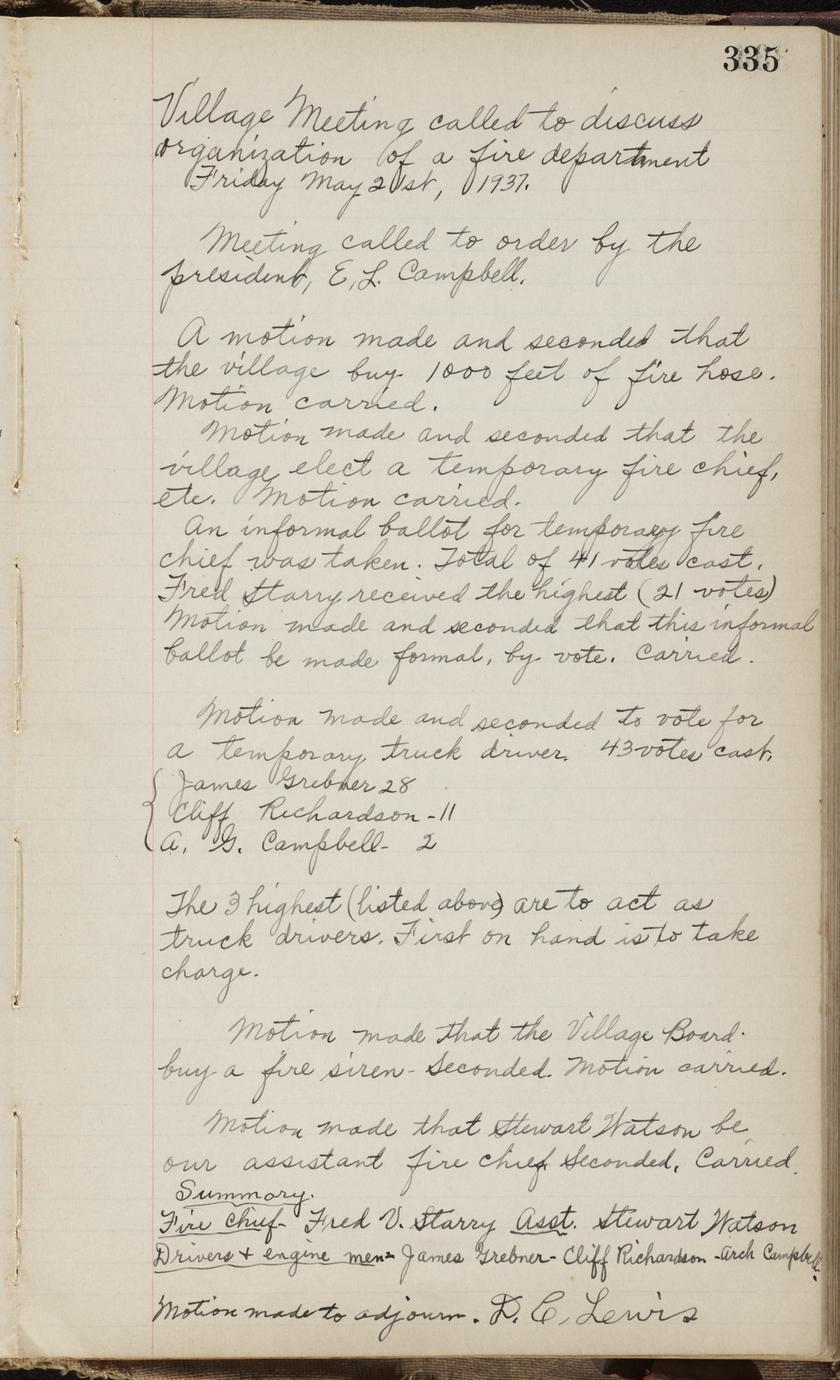 335
Village Meeting called to discuss
organization of a fire department
Friday May 21st, 1937.
Meeting called to order by the
president, E. L. Campbell.
A motion made and seconded that
the village buy 1000 feet of fire hose.
Motion carried.
Motion made and seconded that the
village elect a temporary fire chief,
etc. Motion carried.
An informal ballot for temporary fire
chief was taken. Total of 41 votes cast.
Fred Starry received the highest (21 votes)
Motion made and seconded that this informal
ballot be made formal, by vote. Carried.
Motion made and seconded to vote for
a temporary truck driver. 43 votes cast.
James Grebner 28
Cliff Richardson - 11
A. G. Campbell - 2
The 3 highest (listed above) are to act as
truck drivers. First on hand is to take
charge.
Motion made that the Village Board
buy a fire siren - Seconded. Motion carried.
Motion made that Stewart Watson be
our assistant fire chief. Seconded. Carried.
Summary.
Fire Chief - Fred V. Starry Asst. Stewart Watson
Drivers + engine men = James Grebner - Cliff Richardson - Arch Campbell.
Motion made to adjourn. D. C. Lewis